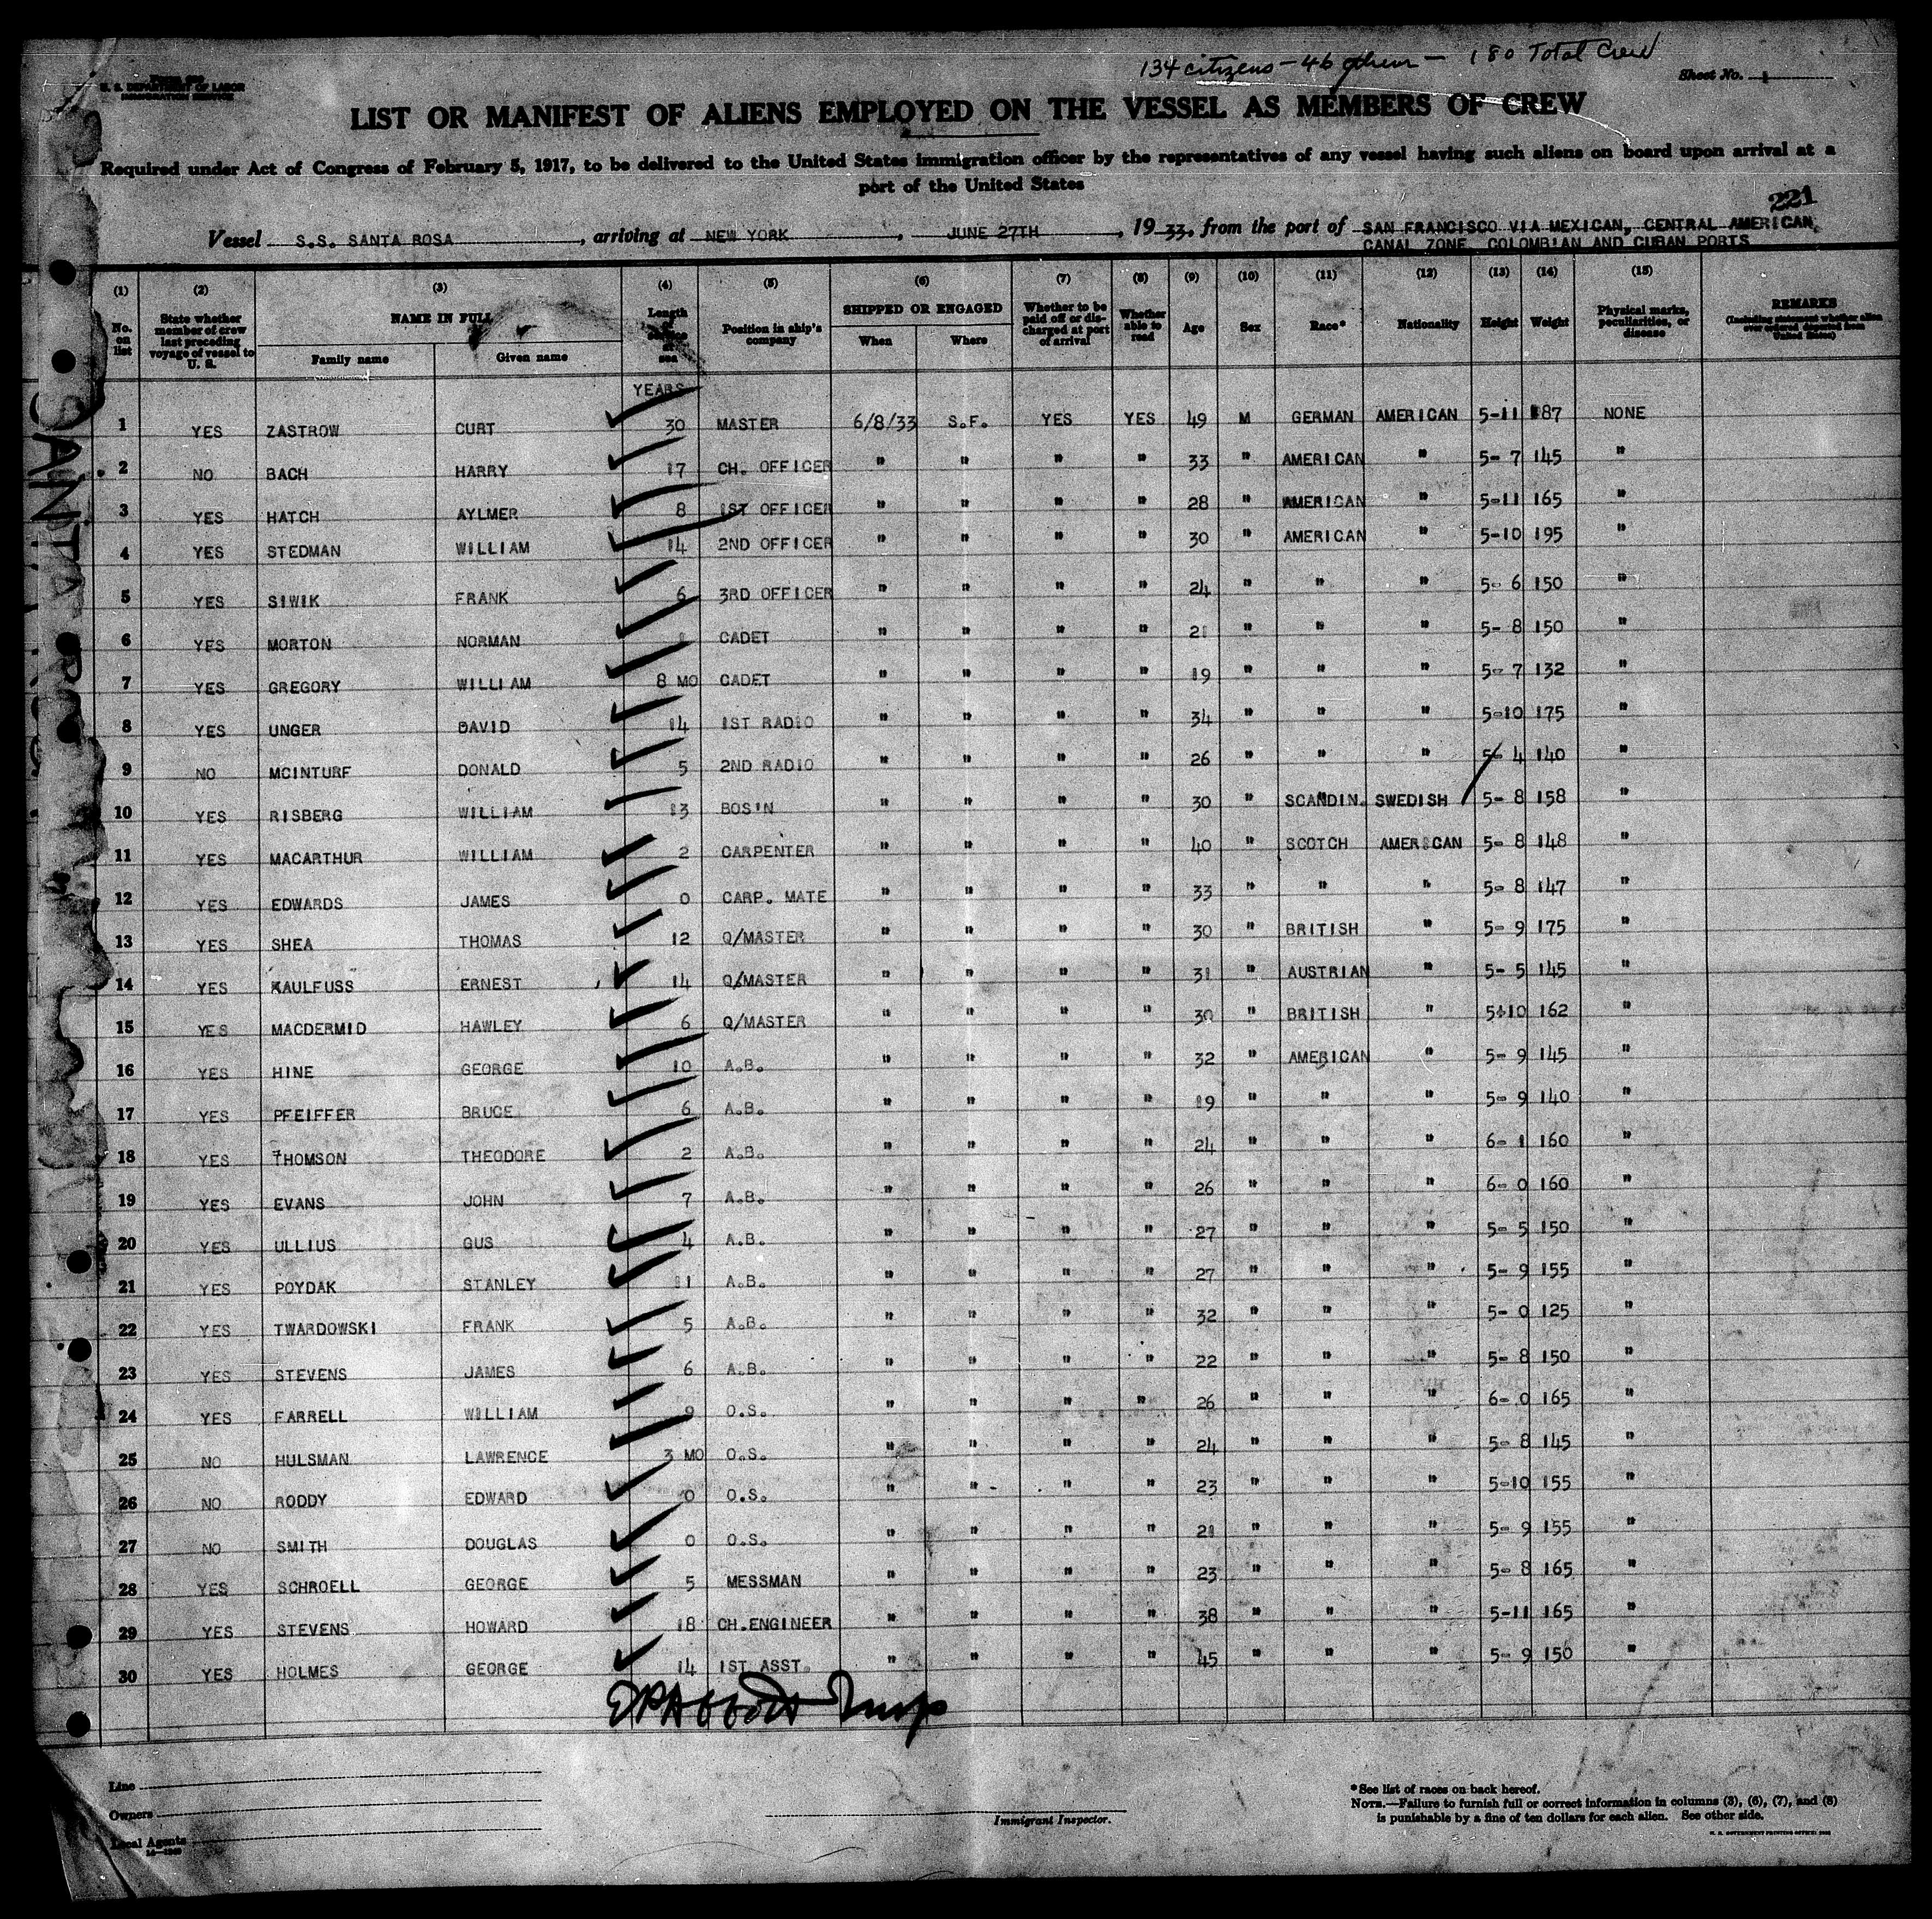 134 citizens - 46 others - 180 Total Crew
Sheet No. 1
Form 689
U. S. DEPARTMENT OF LABOR
IMMIGRATION SERVICE
LIST OR MANIFEST OF ALIENS EMPLOYED ON THE VESSEL AS MEMBERS OF CREW
Required under Act of Congress of February 5, 1917, to be delivered to the United States immigration officer by the representatives of any vessel having such aliens on board upon arrival at a
port of the United States
221
Vessel S.S. SANTA ROSA, arriving at NEW YORK, JUNE 27TH, 1933. from the port of SAN FRANCISCO VIA MEXICAN, CENTRAL AMERICAN,
CANAL ZONE, COLOMBIAN AND CUBAN PORTS
(1) (2) (3) (4) (5) (6) (7) (8) (9) (10) (11) (12) (13) (14) (15)
No. on list | State whether member of crew last preceding voyage of vessel to U. S. | NAME IN FULL Family name Given name | Length of service at sea | Position in ship's company | SHIPPED OR ENGAGED When Where | Whether to be paid off or discharged at port of arrival | Whether able to read | Age | Sex | Race* | Nationality | Height | Weight | Physical marks, peculiarities, or disease | REMARKS (Including statement whether alien ever ordered deported from United States)
YEARS
1 YES ZASTROW CURT 30 MASTER 6/8/33 S.F. YES YES 49 M GERMAN AMERICAN 5-11 187 NONE
2 NO BACH HARRY 17 CH. OFFICER " " " " 33 " AMERICAN " 5- 7 145 "
3 YES HATCH AYLMER 8 1ST OFFICER " " " " 28 " AMERICAN " 5-11 165 "
4 YES STEDMAN WILLIAM 14 2ND OFFICER " " " " 30 " AMERICAN " 5-10 195 "
5 YES SIWIK FRANK 6 3RD OFFICER " " " " 24 " " " 5- 6 150 "
6 YES MORTON NORMAN 1 CADET " " " " 21 " " " 5- 8 150 "
7 YES GREGORY WILLIAM 8 MO CADET " " " " 19 " " " 5- 7 132 "
8 YES UNGER DAVID 14 1ST RADIO " " " " 34 " " " 5-10 175 "
9 NO MCINTURF DONALD 5 2ND RADIO " " " " 26 " " " 5- 4 140 "
10 YES RISBERG WILLIAM 13 BOS'N " " " " 30 " SCANDIN. SWEDISH 5- 8 158 "
11 YES MACARTHUR WILLIAM 2 CARPENTER " " " " 40 " SCOTCH AMERICAN 5- 8 148 "
12 YES EDWARDS JAMES 0 CARP. MATE " " " " 33 " " " 5- 8 147 "
13 YES SHEA THOMAS 12 Q/MASTER " " " " 30 " BRITISH " 5- 9 175 "
14 YES KAULFUSS ERNEST 14 Q/MASTER " " " " 31 " AUSTRIAN " 5- 5 145 "
15 YES MACDERMID HAWLEY 6 Q/MASTER " " " " 30 " BRITISH " 5-10 162 "
16 YES HINE GEORGE 10 A.B. " " " " 32 " AMERICAN " 5- 9 145 "
17 YES PFEIFFER BRUCE 6 A.B. " " " " 19 " " " 5- 9 140 "
18 YES THOMSON THEODORE 2 A.B. " " " " 24 " " " 6- 1 160 "
19 YES EVANS JOHN 7 A.B. " " " " 26 " " " 6- 0 160 "
20 YES ULLIUS GUS 4 A.B. " " " " 27 " " " 5- 5 150 "
21 YES POYDAK STANLEY 11 A.B. " " " " 27 " " " 5- 9 155 "
22 YES TWARDOWSKI FRANK 5 A.B. " " " " 32 " " " 5- 0 125 "
23 YES STEVENS JAMES 6 A.B. " " " " 22 " " " 5- 8 150 "
24 YES FARRELL WILLIAM 9 O.S. " " " " 26 " " " 6- 0 165 "
25 NO HULSMAN LAWRENCE 3 MO O.S. " " " " 24 " " " 5- 8 145 "
26 NO RODDY EDWARD 0 O.S. " " " " 23 " " " 5-10 155 "
27 NO SMITH DOUGLAS 0 O.S. " " " " 21 " " " 5- 9 155 "
28 YES SCHROELL GEORGE 5 MESSMAN " " " " 23 " " " 5- 8 165 "
29 YES STEVENS HOWARD 18 CH.ENGINEER " " " " 38 " " " 5-11 165 "
30 YES HOLMES GEORGE 14 1ST ASST. " " " " 45 " " " 5- 9 150 "
Line
Owners
Local Agents
Immigrant Inspector.
*See list of races on back hereof.
NOTE.—Failure to furnish full or correct information in columns (3), (6), (7), and (8)
is punishable by a fine of ten dollars for each alien. See other side.
SANTA